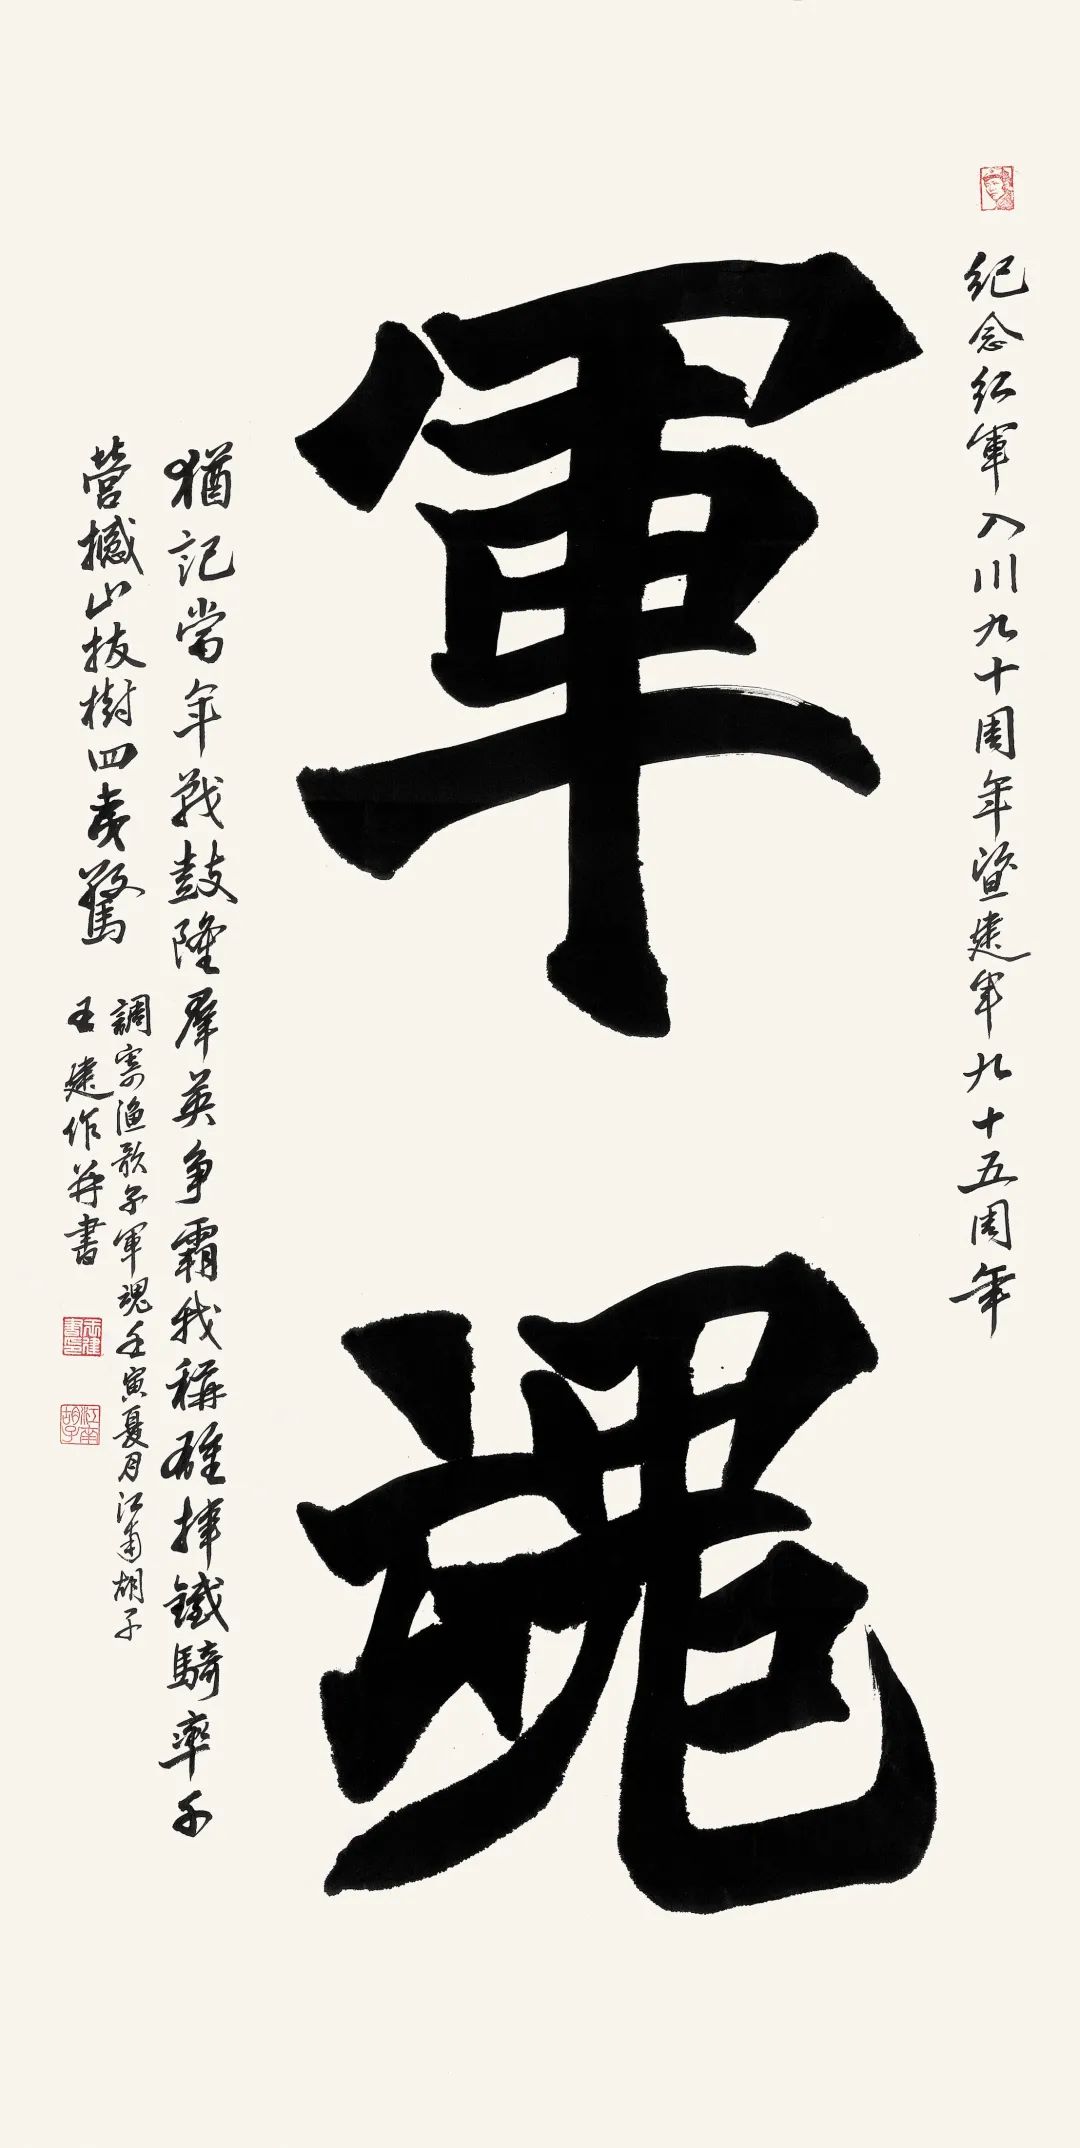 紀念紅軍入川九十周年暨建軍九十五周年
軍魂
猶記當年戰鼓隆羣英争霸我稱雄揮鐵騎率千
營撼山拔樹四夷驚
調寄漁歌子軍魂壬寅夏月江南胡子
王建作并書
王建書印
江南胡子